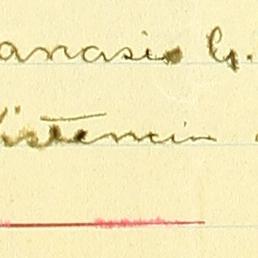 anasio G.
istencia